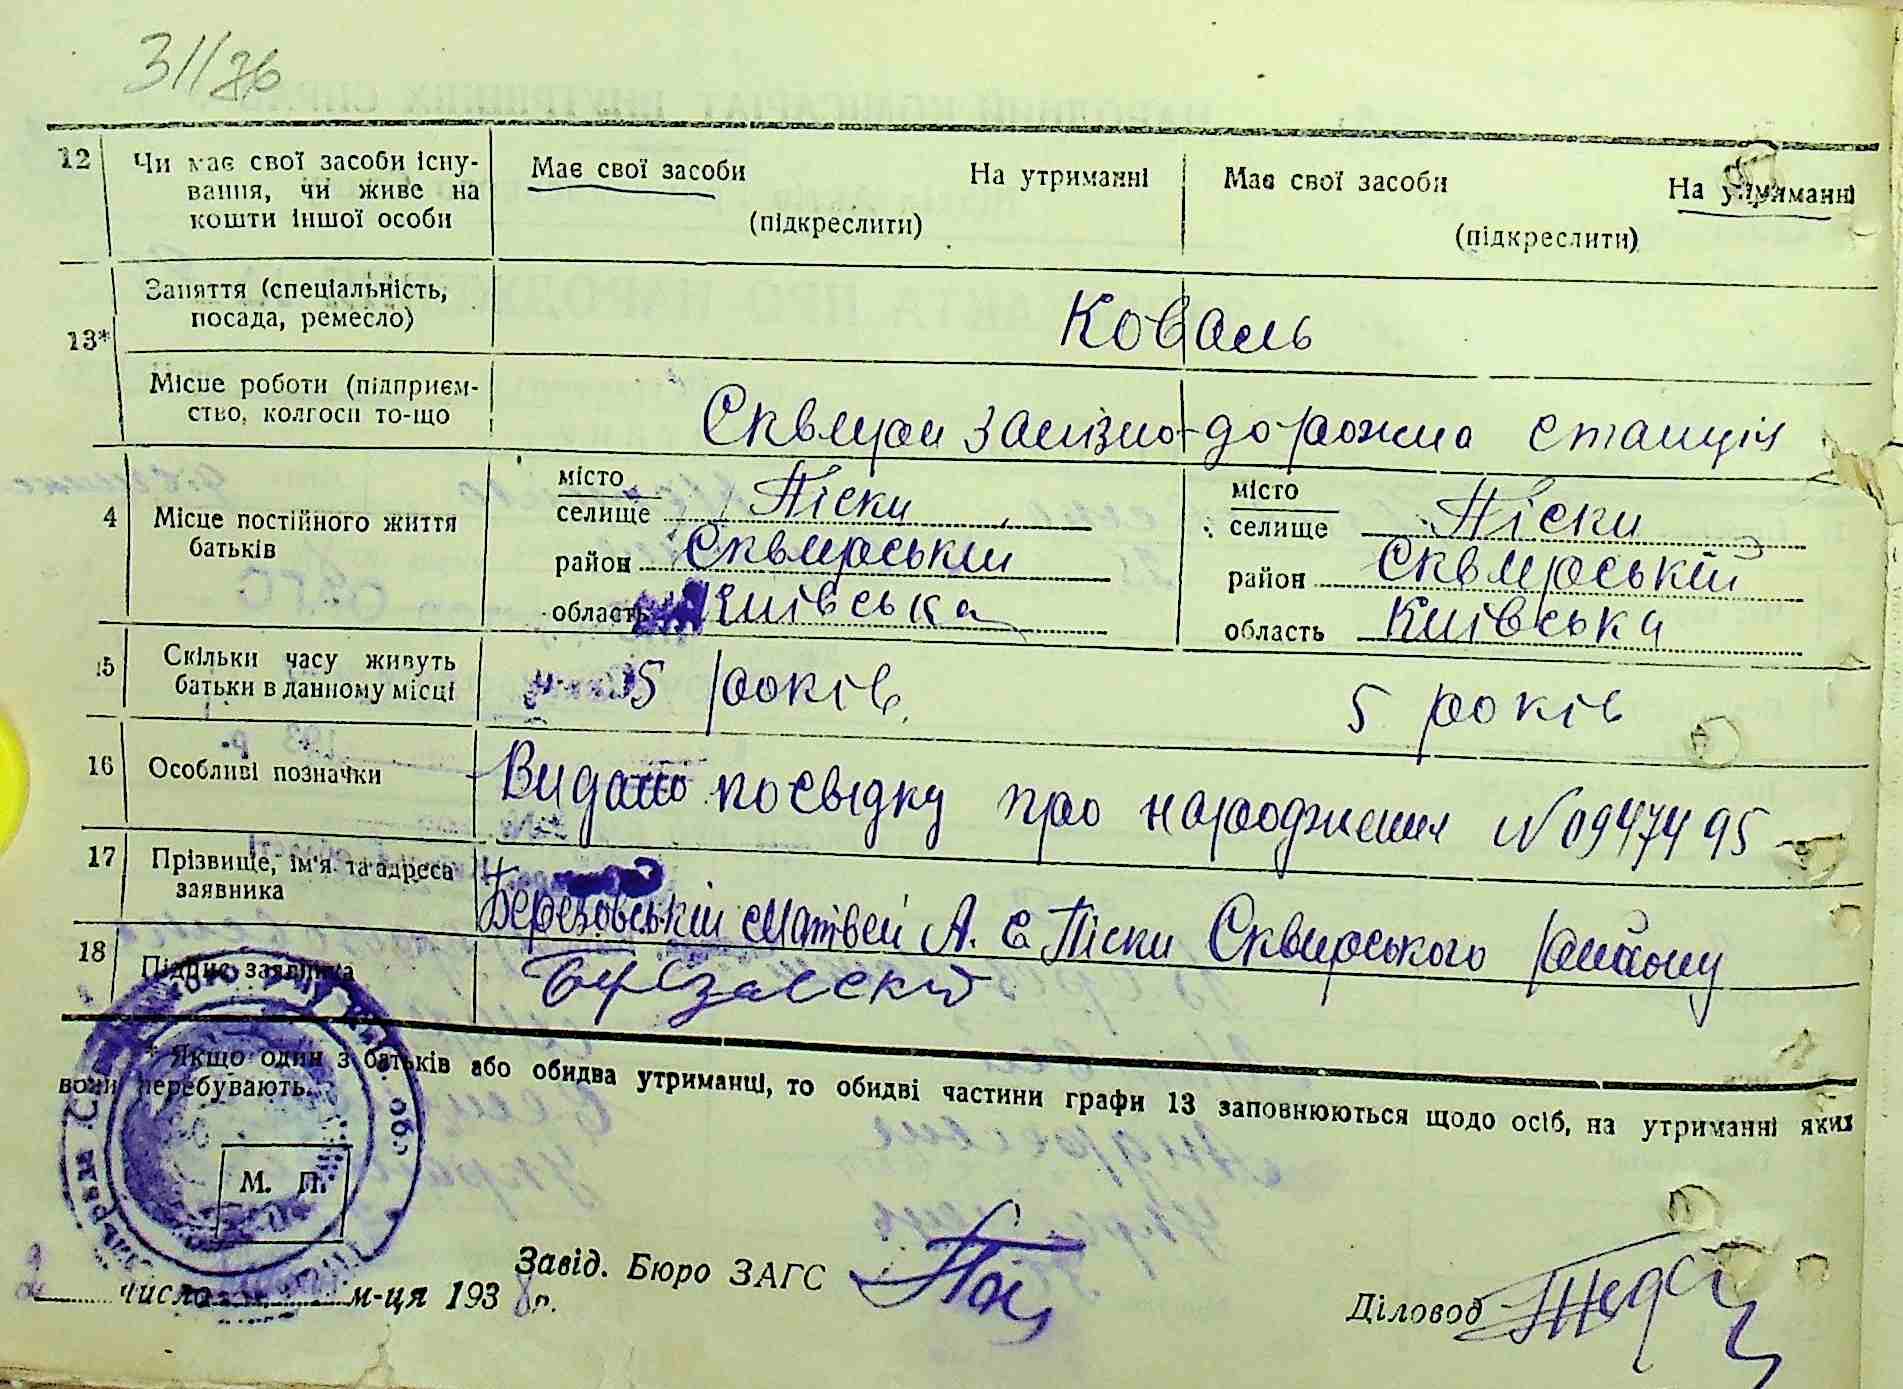 12 Чи має свої засоби існу-
вання, чи живе на
кошти іншої особи
Має свої засоби На утриманні
(підкреслити)
Має свої засоби На утриманні
(підкреслити)
13*
Заняття (спеціальність,
посада, ремесло)
Коваль
Місце роботи (підприєм-
ство, колгосп то-що
Сквирси залізно-дорожна станція
4 Місце постійного життя
батьків
місто
селище Піски
район Сквирський
область Київська
місто
селище Піски
район Сквирській
область Київська
15 Скільки часу живуть
батьки в данному місці
5 років
5 років
16 Особливі позначки
Видано посвідку про народження N 0947495
17 Прізвище, ім'я та адреса
заявника
Березовській Матвей А. с. Піски Сквирського району
18 Підпис заявника
* Якщо один з батьків або обидва утриманці, то обидві частини графи 13 заповнюються щодо осіб, на утриманні яких
вони перебувають.
М. П.
Завід. Бюро ЗАГС
2 числа м-ця 1938 р.
Діловод